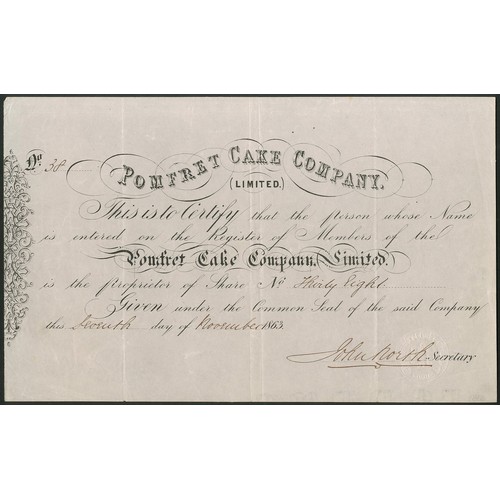 No. 38
POMFRET CAKE COMPANY.
(LIMITED.)
This is to Certify that the person whose Name
is entered on the Register of Members of the
Pomfret Cake Company, (Limited.)
is the proprietor of Share No. Thirty Eight
Given under the Common Seal of the said Company
this Seventh day of November 1863
John North Secretary